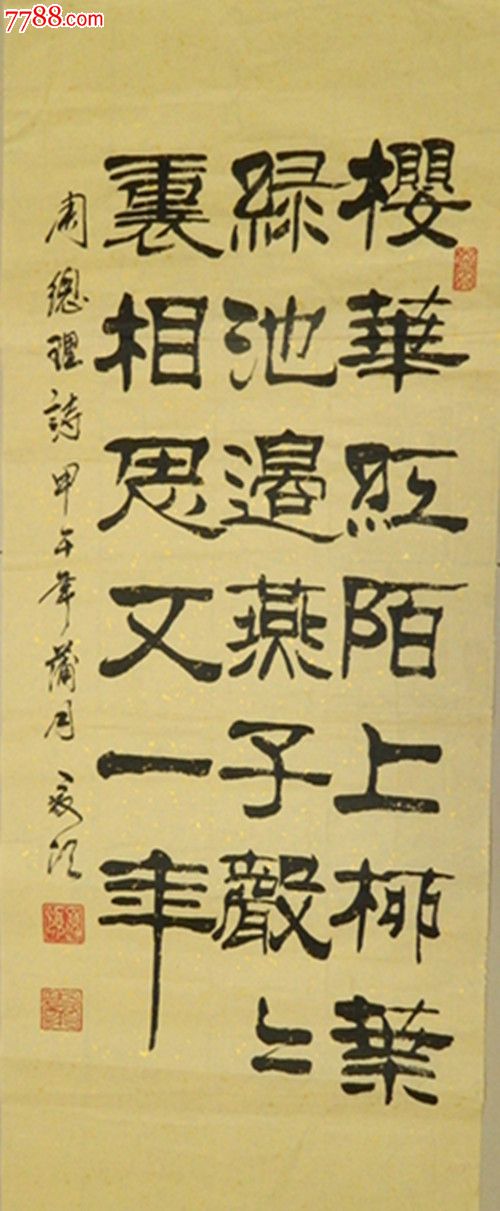 7788.com
櫻華紅陌上柳葉
綠池邊燕子聲〻
裏相思又一年
周總理詩甲午年蒲月